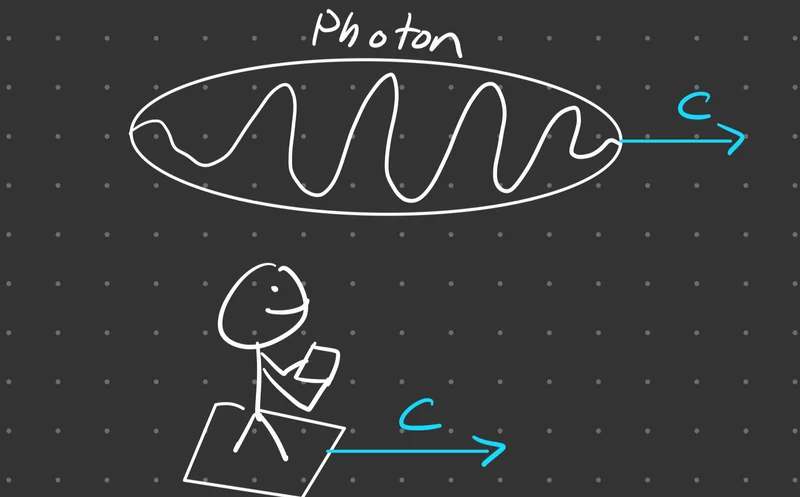 Photon
C
C